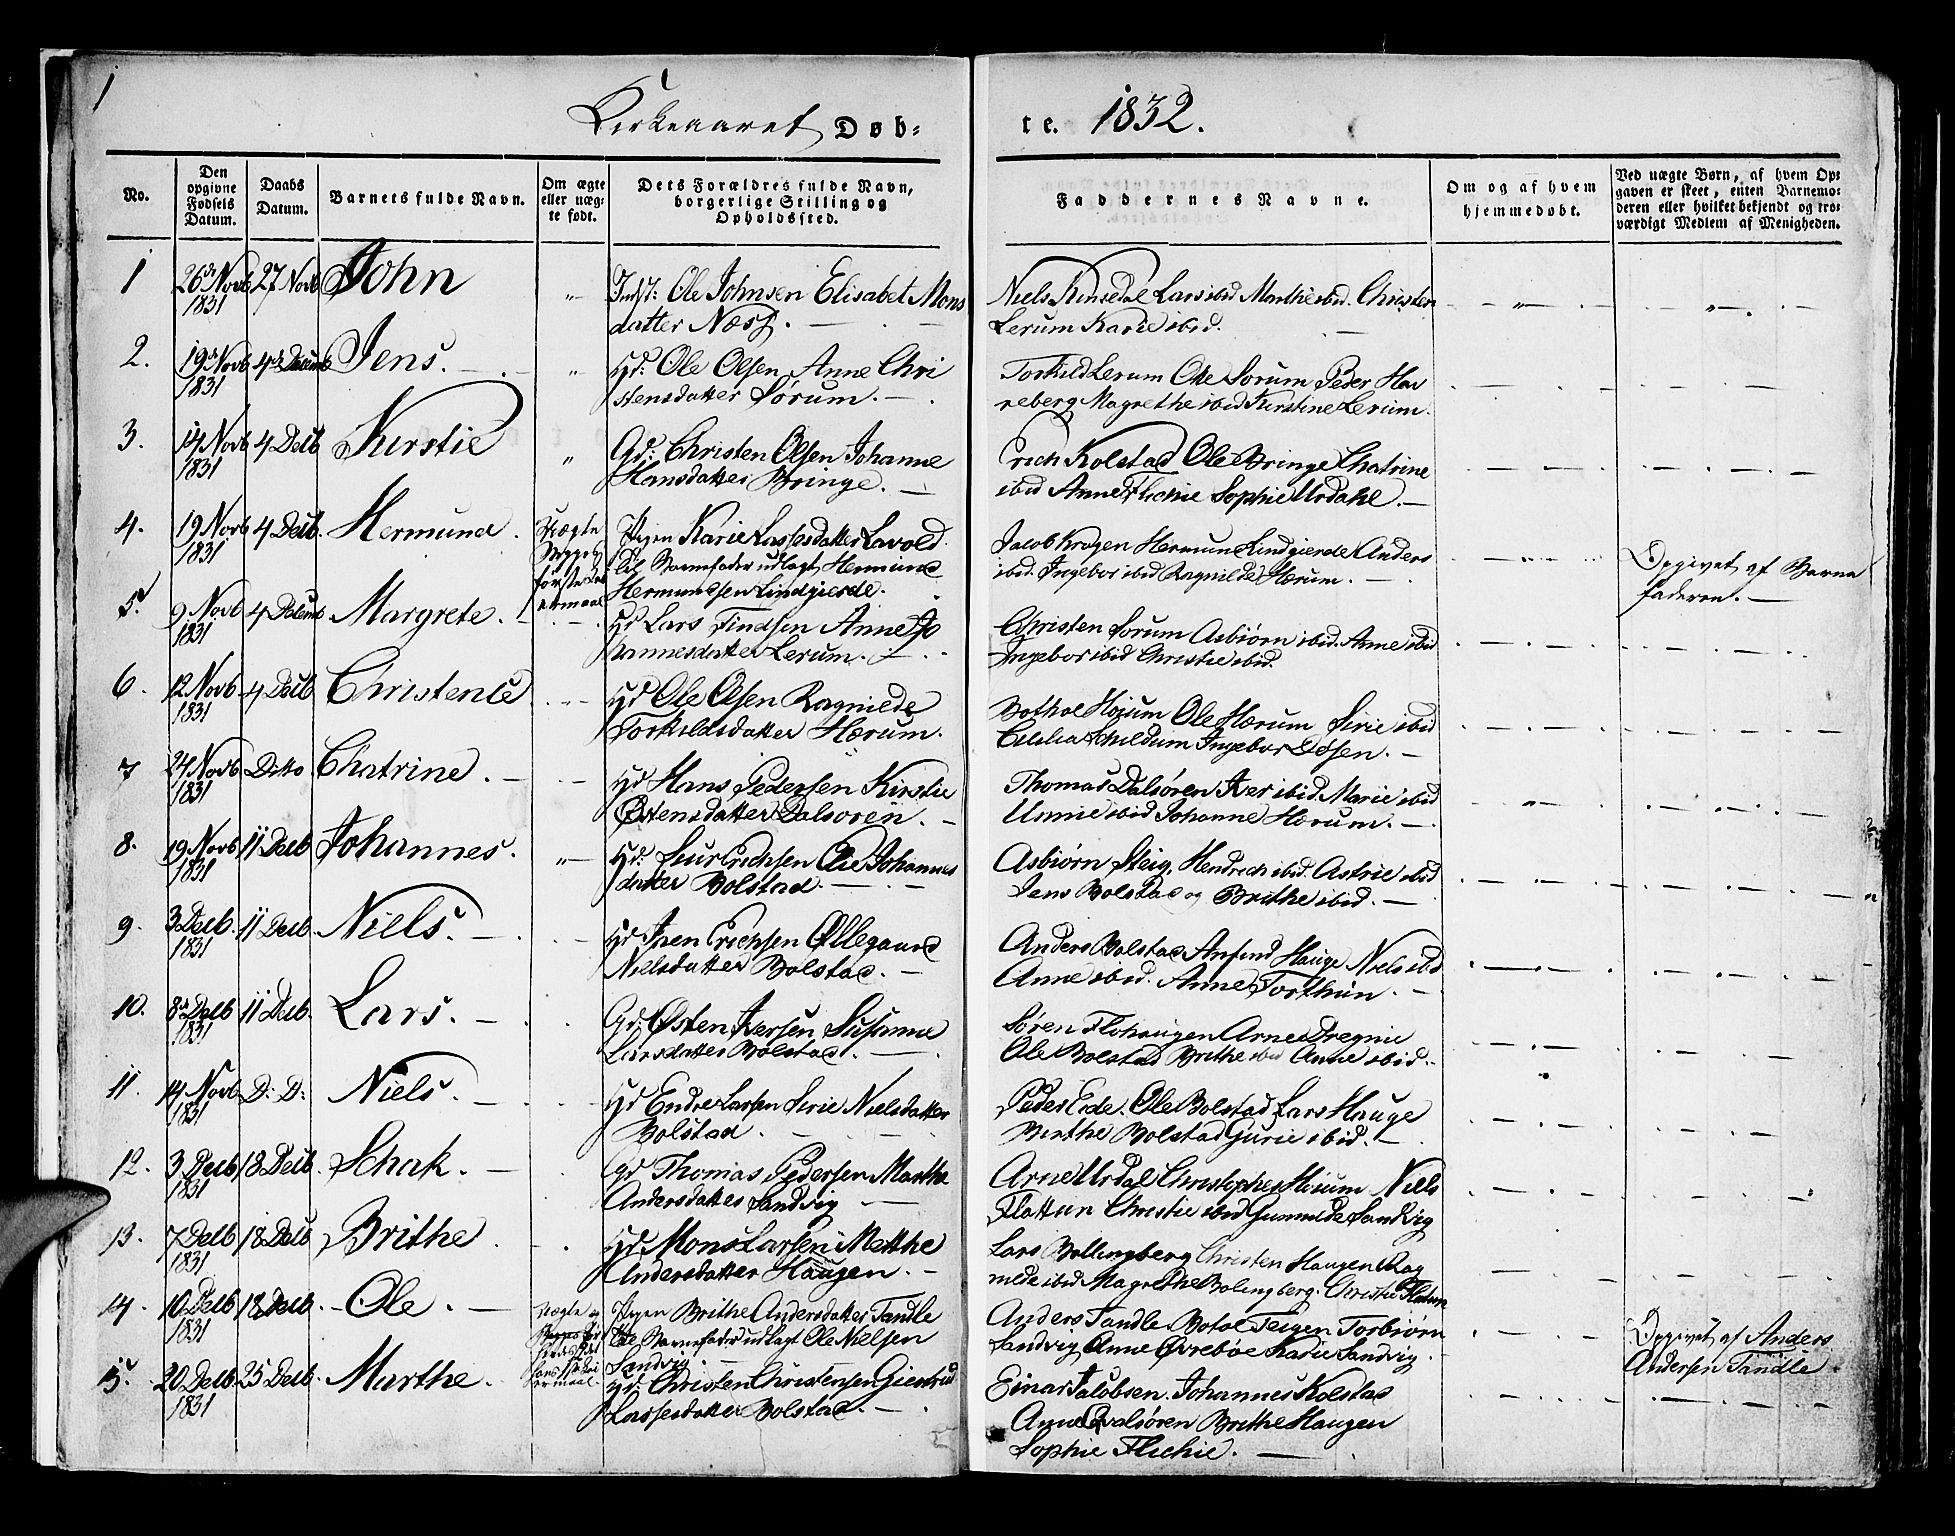 1
Kirkeaaret Døb-
te. 1832.
No.
Den opgivne Fødsels Datum.
Daabs Datum.
Barnets fulde Navn.
Om ægte eller uægte født.
Dets Forældres fulde Navn, borgerlige Stilling og Opholdssted.
Faddernes Navne.
Om og af hvem hjemmedøbt.
Ved uægte Børn, af hvem Opgaven er skeet, enten Barnemoderen eller hvilket bekjendt og troværdigt Medlem af Menigheden.
1 26de Novb 1831 27 Novb John
Inst: Ole Johnsen Elisabet Mons
datter Næss.
Niels Kinsedal Lars ibid Marthe ibid. Christen
Lerum Karie ibid.
2. 19de Novb 1831 4de Decemb Jens.
Hd: Ole Olsen Anne Chri
stensdatter Sørum.
Torkild Lerum Ole Sorum Peder Har
reberg Magrethe ibid Kirstine Lerum.
3. 14 Novb 1831 4 Decb Kirstie
Gd: Christen Olsen Johanne
Hansdatter Bringe.
Erich Kolstad Ole Bringe Chatrine
ibid Anne Flichie Sophie Urdahl.
4. 19 Novb 1831 4 Decb. Hermund.
Uægte Begges første Leiermaal
Pigen Karie Lassesdatter Lavold
til Barnefader udlagt Hermund
Hermundsen Lindgierde.
Jacob Krogen Hermun Lindgierde Anders
ibid. Ingebor ibid Ragnilde Hærum.
Opgivet af Barne
faderen.
5. 9 Novb 1831 4 Decemb Margrete.
Hd Lars Findsen Anne Jo
hannesdatter Lerum.
Christen Sorum Asbiørn ibid. Anne ibid
Ingebor ibid Christie ibid.
6. 12 Novb 1831 4 Decb Christence
Hd Ole Olsen Ragnilde
Torkildsdatter Hærum.
Bothol Hojum Ole Hærum Sirie ibid
Cicilia Schildum Ingebor
7 24 Novb 1831 Ditto Chatrine.
Hd Hans Pedersen Kirstie
Østensdatter Dalsoren.
Thomas Dalsøren Iver ibid Marie ibid
Unnie ibid Johanne Hærum.
8. 19 Novb 1831 11 Decb Johannes.
Hd: Siur Erichsen Olie Johannes
datter Bolstad.
Asbiørn Steig, Hendrich ibid. Astrie ibid
Jens Bolstad og Brithe ibid.
9. 3 Decb. 1831 11 Decb Niels.
Hd Iver Erichsen Øllegaard
Nielsdatter Bolstad.
Anders Bolstad Anfind Hauge Niels ibid
Anne ibid. Anne Torthun.
10. 8de Decb 1831 11 Decb. Lars.
Gd Østen Iversen Susanne
Larsdatter Bolstad.
Søren Flohaugen Arne Dregnie
Ole Bolstad Brithe ibid Anne ibid.
11. 14 Novb 1831 D: D: Niels.
Hd Endre Larsen Sirie Nielsdatter
Bolstad.
Peder Eide. Ole Bolstad Lars Hauge
Birthe Bolstad Gurie ibid.
12. 3 Decb 1831 18 Decb. Schak.
Gd Thomas Pedersen Marthe
Andersdatter Sandvig
Arne Urdal Christopher Hoium Niels
Flattun Christie ibid Gunnilde Sandvig
13. 7 Decb 1831 18 Decb Brithe
Hd. Mons Larsen Metthe
Andersdatter Haugen.
Lars Bollingberg Christen Haugen Rag
nilde ibid Magrethe Bolingberg. Christie Flattun
14. 10 Decb 1831 18 Decb. Ole.
Uægte
Pigen Brithe Andersdatter Tandle
til Barnefader udlagt Ole Nielsen
Sandvig.
Anders Tandle Botol Teigen Torbiørn
Sandvig Anne Øvreboe Karie Sandvig.
Opgivet af Anders
Andersen Tandle.
15. 20 Decb 1831 25 Decb. Marthe.
Hd Christen Christensen Giertrud
Lassesdatter Bolstad.
Einar Jacobsen. Johannes Kolstad
Anne Dalsøren Brithe Haugen
Sophie Flichie.